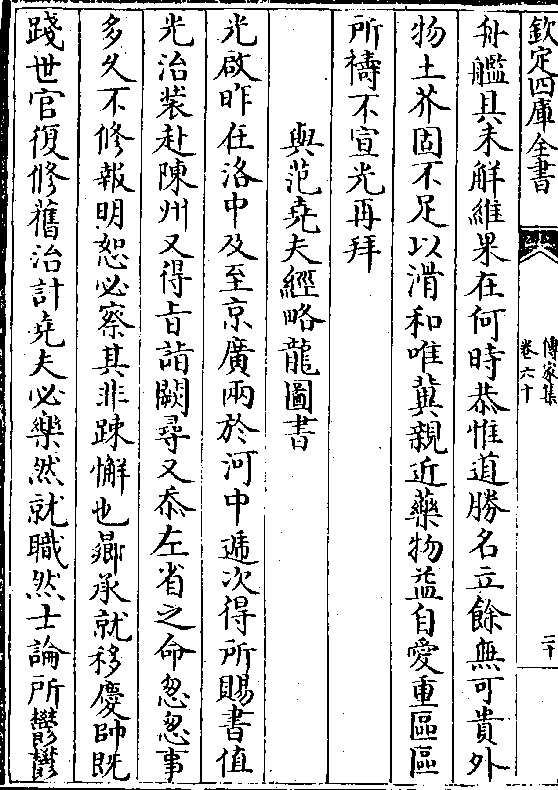 欽定四庫全書
傳家集
卷六十
二十
舟艦具未解維果在何時恭惟道勝名立餘無可貴外
物土芥固不足以滑和唯冀親近藥物益自愛重區區
所禱不宣光再拜
與范堯夫經略龍圖書
光啟昨在洛中及至京廣兩於河中遞次得所賜書值
光治裝赴陳州又得旨詣闕尋又忝左省之命怱怱事
多久不修報明恕必察其非踈懈也曏承就移慶帥既
踐世官復修舊治計堯夫必樂然就職然士論所鬱鬱